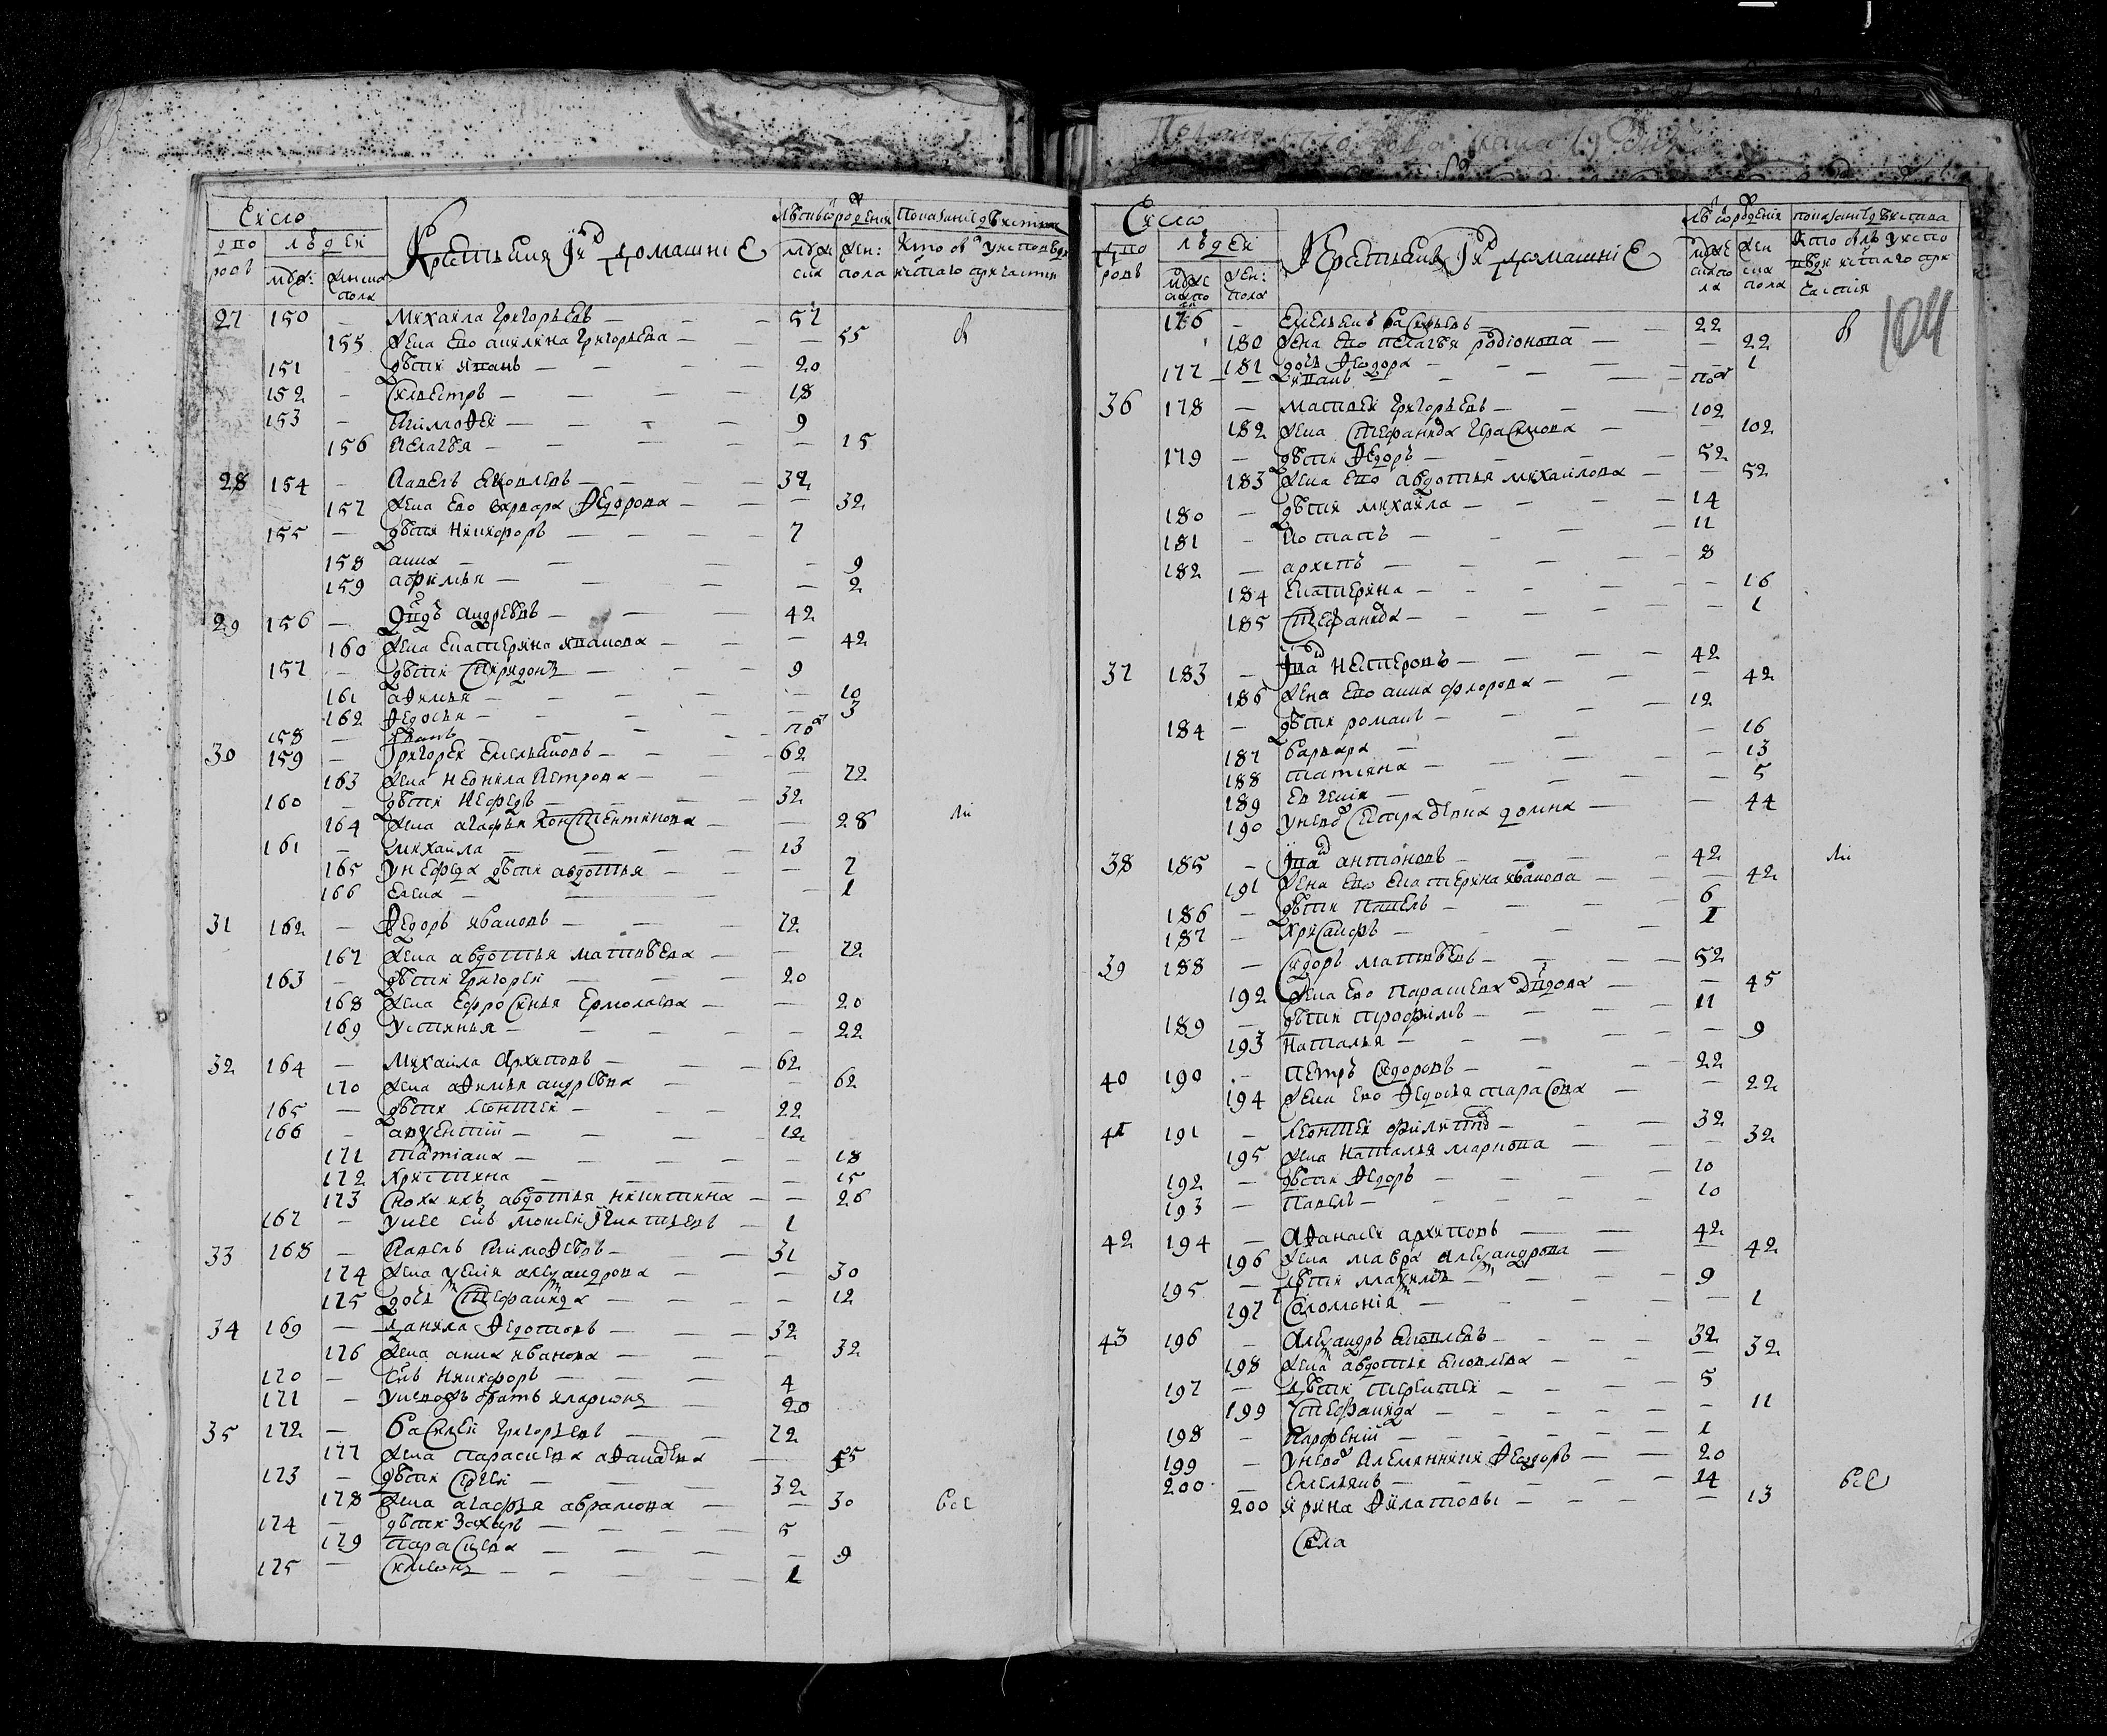 Число
Крестьяня и их домашние
Лѣта от рождения
дворовъ
людеи
муж:
женска
пола
муж
ска
жен:
пола
27 150 — Михаила Григорьевъ — 57
155 жена ево Акилина Григорьева — 55
151 — дѣти Иванъ — 20
152 — Силвестръ — 18
153 — Тимофеи — 9
156 Пелагѣя — 15
28 154 — Павелъ Яковлевъ — 32
157 жена ево Варвара Федорова — 32
155 — дѣти Никифоръ — 7
158 Анна — 9
159 Афимья — 2
29 156 — Андреевъ — 42
160 жена Екатерина Иванова — 42
157 — дѣти Спиридонъ — 9
161 Афимья — 10
162 Федосья — 3
158 — Иванъ — пол
30 159 — Григореи Емельяновъ — 62
163 жена Неонила Петрова — 72
160 — дѣти Нефедъ — 32
164 жена Агафья Констентинова — 28
161 — Михаила — 13
165 у Нефеда дѣти Авдотья — 7
166 Елена — 1
31 162 — Федоръ Ивановъ — 72
167 жена Авдотья Матвѣева — 72
163 — дѣти Григореи — 20
168 жена Ефросинья Ермолаева — 20
169 Устинья — 22
32 164 — Михаила Архиповъ — 62
170 жена Афимья Андрѣевна — 62
165 — дѣти Леонтеи — 22
166 — Авксентии — 12
171 Татиана — 18
172 Христина — 15
173 сноха ихъ Авдотья Никитина — 26
167 — у нее снъ Моисеи Игнатьевъ — 1
33 168 — Павелъ Тимофеевъ — 31
174 жена Ксения Александрова — 30
175 дочь Стефанида — 12
34 169 — Данила Федотовъ — 32
176 жена Анна Иванова — 32
170 — снъ Никифоръ — 4
171 — братъ Иларионъ — 20
35 172 — Василеи Григорьевъ — 72
177 жена Парасковья — 55
173 — дѣти Сергеи — 32
178 жена Агафья Аврамова — 30 все
174 — дѣти Захаръ — 5
179 Парасковья — 9
175 — Симеонъ — 1
104
Число
Крестьяня и их домашние
176 — Емельянъ Васильевъ — 22
180 жена ево Пелагѣя Родионова — 22
181 дочь Федора — 1
177 — Иванъ — пол
36 178 — Матвеи Григорьевъ — 102
182 жена Стефанида Герасимова — 102
179 — дѣти Федоръ — 52
183 жена ево Авдотья Михаилова — 52
180 — дѣти Михаила — 14
181 — Потапъ — 11
182 — Архипъ — 8
184 Екатерина — 16
185 Стефанида — 1
37 183 — Нестеровъ — 42
186 жена ево Анна Флорова — 42
184 — дѣти Романъ — 12
187 Варвара — 16
188 Татияна — 13
189 Евгения — 5
190 у него сестра Домна — 44
38 185 — Антоновъ — 42
191 жена ево Екатерина Иванова — 42
186 — дѣти Павелъ — 6
187 — Хрисанфъ — 1
39 188 — Сидоръ Матвѣевъ — 52
192 жена ево Парасковья — 45
189 — дѣти Трофимъ — 11
193 Наталья — 9
40 190 — Петръ Сидоровъ — 22
194 жена ево Федосья Тарасова — 22
41 191 — Леонтеи Филипов — 32
195 жена Наталья Маркова — 32
192 — дѣти Федоръ — 10
193 — Павелъ — 10
42 194 — Афанасеи Архиповъ — 42
196 жена Мавра Александрова — 42
195 — дѣти Максимъ — 9
197 Соломония — 1
43 196 — Александръ Яковлевъ — 32
198 жена Авдотья Яковлева — 32
197 — дѣти Терентеи — 5
199 Стефанида — 11
198 — Парфении — 1
199 — у него племянники Феодоръ — 20
200 — Емельянъ — 14
200 Ирина Филатовы — 13 все
Села